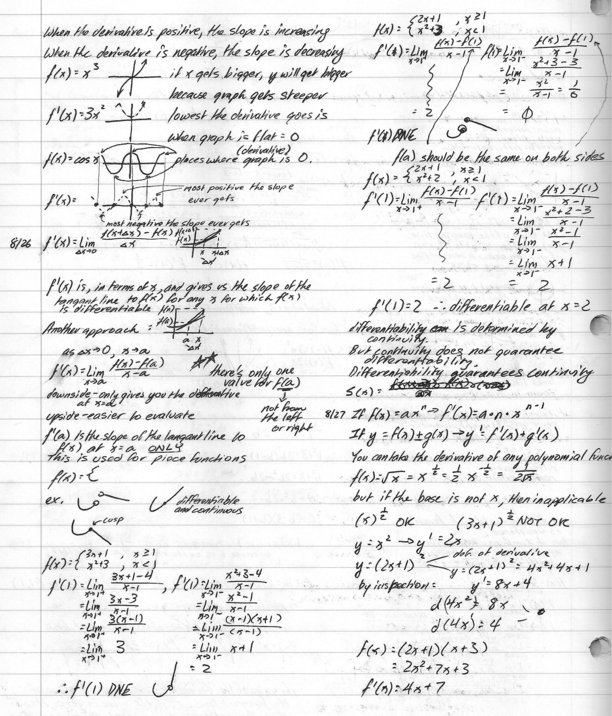 When the derivative is positive, the slope is increasing
When the derivative is negative, the slope is decreasing
f(x)=x³ if x gets bigger, y will get bigger
because graph gets steeper
f'(x)=3x² lowest the derivative goes is
when graph is flat = 0
(derivative)
f(x)=cos x places where graph is 0.
f'(x)= most positive the slope
ever gets
most negative the slope ever gets
8/26 f'(x)=Lim Δx→0 f(x+Δx)-f(x) / Δx
f'(x) is, in terms of x, and gives us the slope of the
tangent line to f(x) for any x for which f(x)
is differentiable
Another approach:
as Δx→0, x→a
f'(x)=Lim x→a f(x)-f(a) / x-a
there's only one
value for f(a)
not from
the left
or right
downside-only gives you the derivative
at x=a
upside-easier to evaluate
f'(a) is the slope of the tangent line to
f(x) at x=a ONLY
This is used for piece functions
f(x)={
ex. differentiable
and continuous
cusp
f(x)={3x+1 , x≥1
x²+3 , x<1
f'(1)=Lim x→1⁺ 3x+1-4 / x-1 , f'(1)=Lim x→1⁻ x²+3-4 / x-1
=Lim x→1⁺ 3x-3 / x-1 =Lim x→1⁻ x²-1 / x-1
=Lim x→1⁺ 3(x-1) / x-1 =Lim x→1⁻ (x-1)(x+1) / (x-1)
=Lim x→1⁺ 3 =Lim x→1⁻ x+1
= 2
∴ f'(1) DNE
f(x)={2x+1 , x≥1
x²+3 , x<1
f'(x)=Lim x→1⁺ f(x)-f(1) / x-1 f(x)=Lim x→1⁻ f(x)-f(1) / x-1
=Lim x→1⁻ x²+3-3 / x-1
= x² / x-1 = 1/0
= 2 = ∅
f'(x) DNE
f(a) should be the same on both sides
f(x)={2x+1 , x≥1
x²+2 , x<1
f'(1)=Lim x→1⁺ f(x)-f(1) / x-1 f'(1)=Lim x→1⁻ f(x)-f(1) / x-1
=Lim x→1⁻ x²+2-3 / x-1
=Lim x→1⁻ x²-1 / x-1
=Lim x→1⁻ x+1
= 2 = 2
f'(1)=2 ∴ differentiable at x=2
differentiability is determined by
continuity.
But continuity does not guarantee
differentiability.
Differentiability guarantees continuity
8/27 If f(x)=axⁿ → f'(x)=a·n·xⁿ⁻¹
If y=f(x)±g(x) → y'=f'(x)+g'(x)
You can take the derivative of any polynomial
f(x)=√x = x^½ = ½ x^-½ = 1/2√x
but if the base is not x, then inapplicable
(x)^½ OK (3x+1)^½ NOT OK
y=x² → y'=2x
def. of derivative
y=(2x+1)² y=(2x+1)²=4x²+4x+1
by inspection= y'=8x+4
d(4x²)=8x
d(4x)=4
f(x)=(2x+1)(x+3)
=2x²+7x+3
f'(x)=4x+7